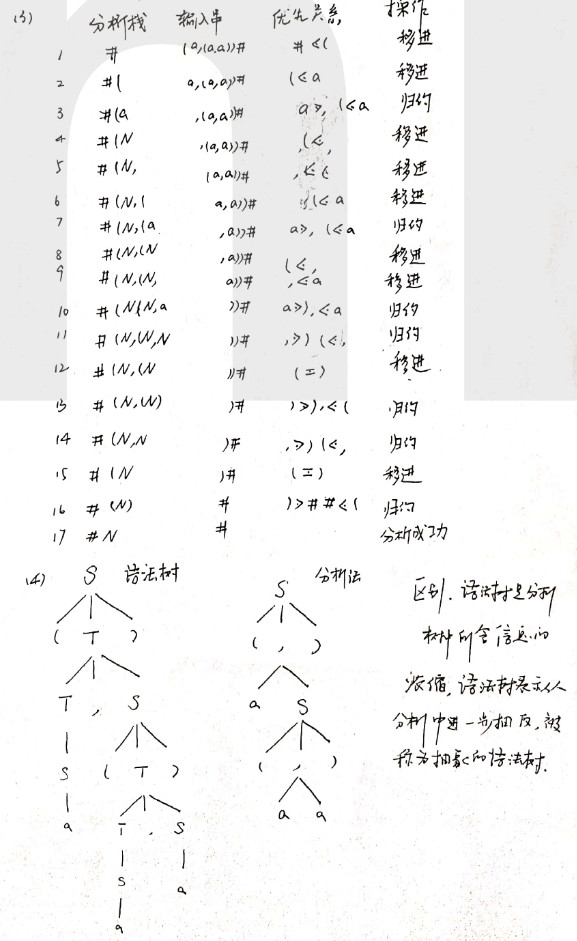 (3) 分析栈 输入串 优先关系 操作
1 # (a,(a,a))# #⋖( 移进
2 #( a,(a,a))# (⋖a 移进
3 #(a ,(a,a))# a⋗, (⋖a 归约
4 #(N ,(a,a))# (⋖, 移进
5 #(N, (a,a))# ,⋖( 移进
6 #(N,( a,a))# (⋖a 移进
7 #(N,(a ,a))# a⋗, (⋖a 归约
8 #(N,(N ,a))# (⋖, 移进
9 #(N,(N, a))# ,⋖a 移进
10 #(N,(N,a ))# a⋗),⋖a 归约
11 #(N,(N,N ))# ,⋗) (⋖, 归约
12 #(N,(N ))# (=) 移进
13 #(N,(N) )# )⋗),⋖( 归约
14 #(N,N )# ,⋗) (⋖, 归约
15 #(N )# (=) 移进
16 #(N) # )⋗# #⋖( 归约
17 #N # 分析成功
(4) S 语法树
( T )
T , S
S ( T )
a T , S
S a
a
S 分析法
( , )
a S
( , )
a a
区别:语法树是分析
树中所含信息的
浓缩,语法树表示从
分析中进一步抽
称为抽象的语法树.